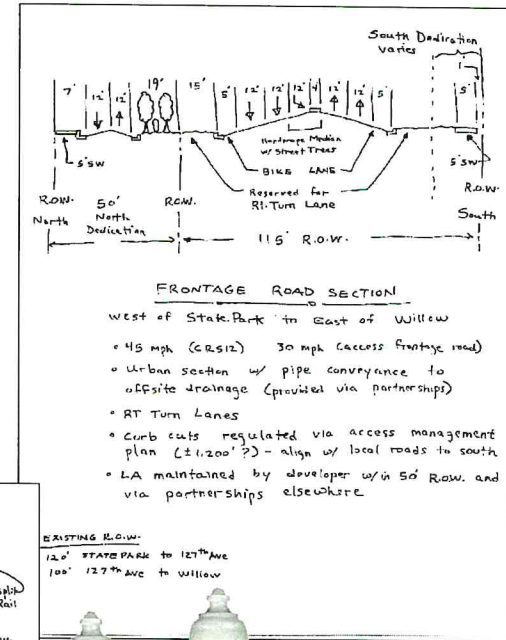 South Dedication
varies
1'
7' 12' 12' 19' 15' 5' 12' 12' 12' 4' 12' 12' 5' 5'
Hardscape Median
w/ Street Trees
5' SW
BIKE LANE
5' SW
Reserved for
Rt. Turn Lane
R.O.W. 50' R.O.W. R.O.W.
North North South
Dedication
115' R.O.W.
FRONTAGE ROAD SECTION
West of State Park to East of Willow
• 45 mph (CR512) 30 mph (access frontage road)
• Urban section w/ pipe conveyance to
offsite drainage (provided via partnerships)
• RT Turn Lanes
• Curb cuts regulated via access management
plan (±1,200'?) - align w/ local roads to south
• LA maintained by developer w/in 50' R.O.W. and
via partnerships elsewhere
split
Rail
EXISTING R.O.W.
120' STATE PARK to 127th Ave
100' 127th Ave to Willow